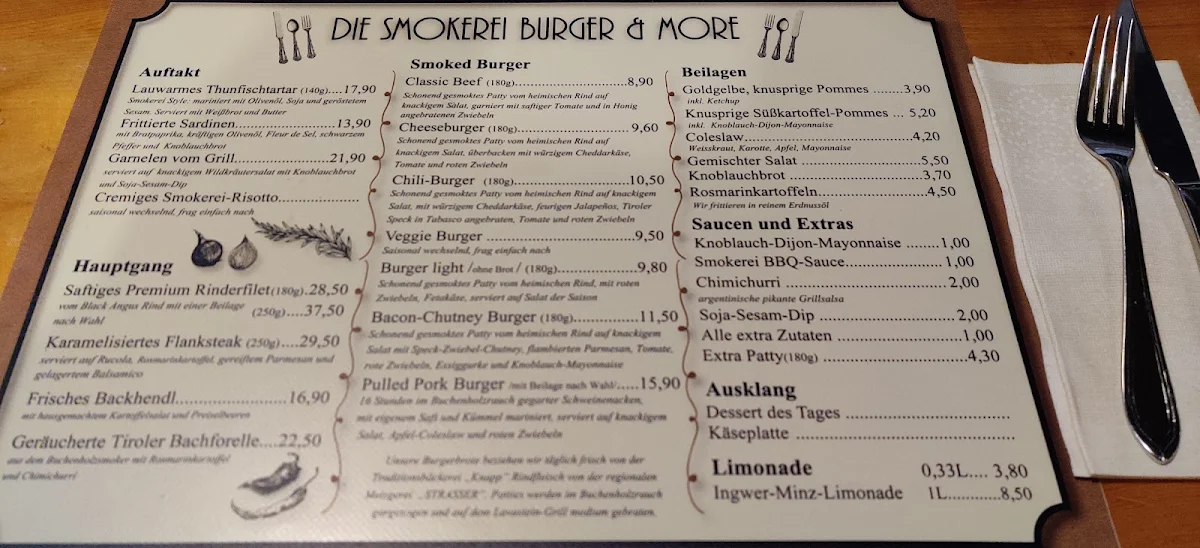 DIE SMOKEREI BURGER & MORE
Auftakt
Lauwarmes Thunfischtartar (140g)....17,90
Smokerei Style: mariniert mit Olivenöl, Soja und geröstetem
Sesam. Serviert mit Weißbrot und Butter
Frittierte Sardinen.......................13,90
mit Bratpaprika, kräftigen Olivenöl, Fleur de Sel, schwarzem
Pfeffer und Knoblauchbrot
Garnelen vom Grill.......................21,90
serviert auf knackigem Wildkräutersalat mit Knoblauchbrot
und Soja-Sesam-Dip
Cremiges Smokerei-Risotto...................
saisonal wechselnd, frag einfach nach
Hauptgang
Saftiges Premium Rinderfilet(180g).28,50
vom Black Angus Rind mit einer Beilage (250g)....37,50
nach Wahl
Karamelisiertes Flanksteak (250g)....29,50
serviert auf Rucola, Rosmarinkartoffel, gereiftem Parmesan und
gelagertem Balsamico
Frisches Backhendl.......................16,90
mit hausgemachtem Kartoffelsalat und Preiselbeeren
Geräucherte Tiroler Bachforelle....22,50
aus dem Buchenholzsmoker mit Rosmarinkartoffel
und Chimichurri
Smoked Burger
Classic Beef (180g)............................8,90
Schonend gesmoktes Patty vom heimischen Rind auf
knackigem Salat, garniert mit saftiger Tomate und in Honig
angebratenen Zwiebeln
Cheeseburger (180g)............................ 9,60
Schonend gesmoktes Patty vom heimischen Rind auf
knackigem Salat, überbacken mit würzigem Cheddarkäse,
Tomate und roten Zwiebeln
Chili-Burger (180g)............................10,50
Schonend gesmoktes Patty vom heimischen Rind auf knackigem
Salat, mit würzigem Cheddarkäse, feurigen Jalapeños, Tiroler
Speck in Tabasco angebraten, Tomate und roten Zwiebeln
Veggie Burger ..............................9,50
Saisonal wechselnd, frag einfach nach
Burger light /ohne Brot / (180g)....................9,80
Schonend gesmoktes Patty vom heimischen Rind, mit roten
Zwiebeln, Fetakäse, serviert auf Salat der Saison
Bacon-Chutney Burger (180g)..................11,50
Schonend gesmoktes Patty vom heimischen Rind auf knackigem
Salat mit Speck-Zwiebel-Chutney, flambierten Parmesan, Tomate,
rote Zwiebeln, Essiggurke und Knoblauch-Mayonnaise
Pulled Pork Burger /mit Beilage nach Wahl/.....15,90
16 Stunden im Buchenholzrauch gegarter Schweinenacken,
mit eigenem Saft und Kümmel mariniert, serviert auf knackigem
Salat, Apfel-Coleslaw und roten Zwiebeln
Unsere Burgerbrote beziehen wir täglich frisch von der
Traditionsbäckerei „Knapp“ Rindfleisch von der regionalen
Metzgerei „STRASSER“. Patties werden im Buchenholzrauch
gezogen und auf dem Lavastein-Grill medium gebraten.
Beilagen
Goldgelbe, knusprige Pommes .......3,90
inkl. Ketchup
Knusprige Süßkartoffel-Pommes ... 5,20
inkl. Knoblauch-Dijon-Mayonnaise
Coleslaw....................................4,20
Weisskraut, Karotte, Apfel, Mayonnaise
Gemischter Salat ..........................5,50
Knoblauchbrot .............................3,70
Rosmarinkartoffeln.......................4,50
Wir frittieren in reinem Erdnussöl
Saucen und Extras
Knoblauch-Dijon-Mayonnaise ........1,00
Smokerei BBQ-Sauce.................... 1,00
Chimichurri ................................ 2,00
argentinische pikante Grillsalsa
Soja-Sesam-Dip ...........................2,00
Alle extra Zutaten ........................1,00
Extra Patty(180g) ..........................4,30
Ausklang
Dessert des Tages .............................
Käseplatte .......................................
Limonade 0,33L.... 3,80
Ingwer-Minz-Limonade 1L...........8,50